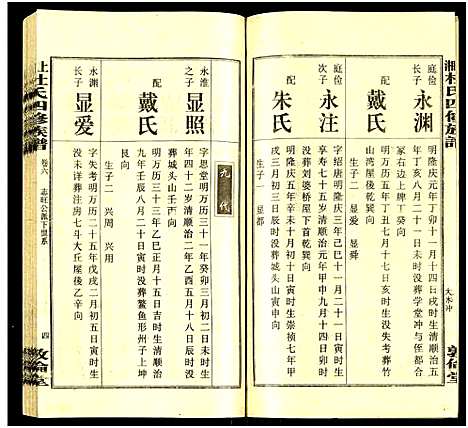 湘杜氏四修族譜
大木冲
敦倫堂
永渊
明隆庆元年丁卯十一月十四戌时生清顺治五
年丁亥八月二十一日未时没葬学堂冲与侄都合
冢右边上脾丁癸向
配
戴氏
明万历五年丁丑七月十七日亥时生没葬
山湾屋後乾巽向
生子二 显爱 显舜
庭俭
次子
永注
字绍唐明隆庆三年己巳十一月二十一日寅时生
没葬刘婆桥屋下首乾巽向
配
朱氏
明隆庆五年辛未十月初十日寅时生崇祯七年甲
戌三月初三日辰时没葬城头山寅申向
生子一 显都
九代
永淮
之子
显照
字思堂明万历三十一年癸卯三月初二日未时生
四十二岁清顺治二年乙酉五月十八日辰时没
葬城头山壬丙向
配
戴氏
明万历三十三年乙巳正月十五日寅时生清顺治
九年壬辰八月二十日寅时没葬鳌鱼形州子上坤
艮向
生子二 兴周 兴用
永渊
长子
显爱
字失考明万历二十六年戊戌二月初五日寅时生
没未详葬注房七斗大丘屋後乙辛向
上杜氏四修族譜
卷六
志旺公派下世系
四
敦倫堂